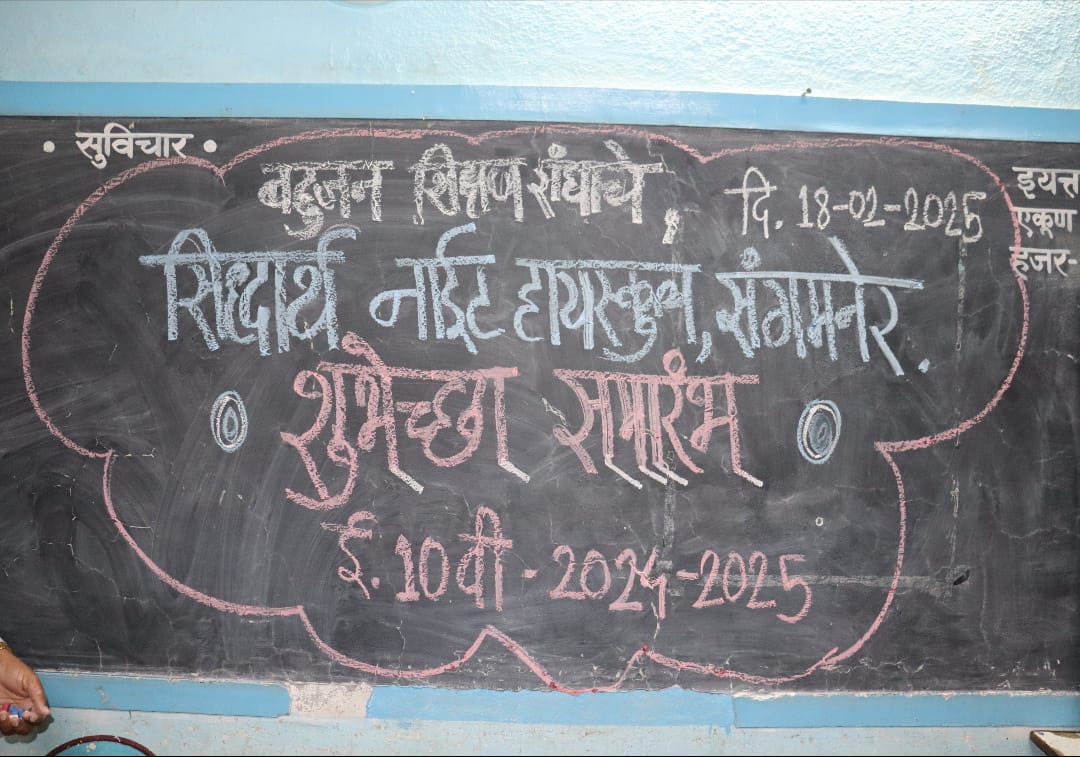 • सुविचार •
बहुजन शिक्षण संघाचे,
दि. 18-02-2025
सिध्दार्थ नाईट हायस्कुल, संगमनेर.
शुभेच्छा समारंभ
ई. 10 वी - 2024-2025
इयत्त
एकूण
हजर-